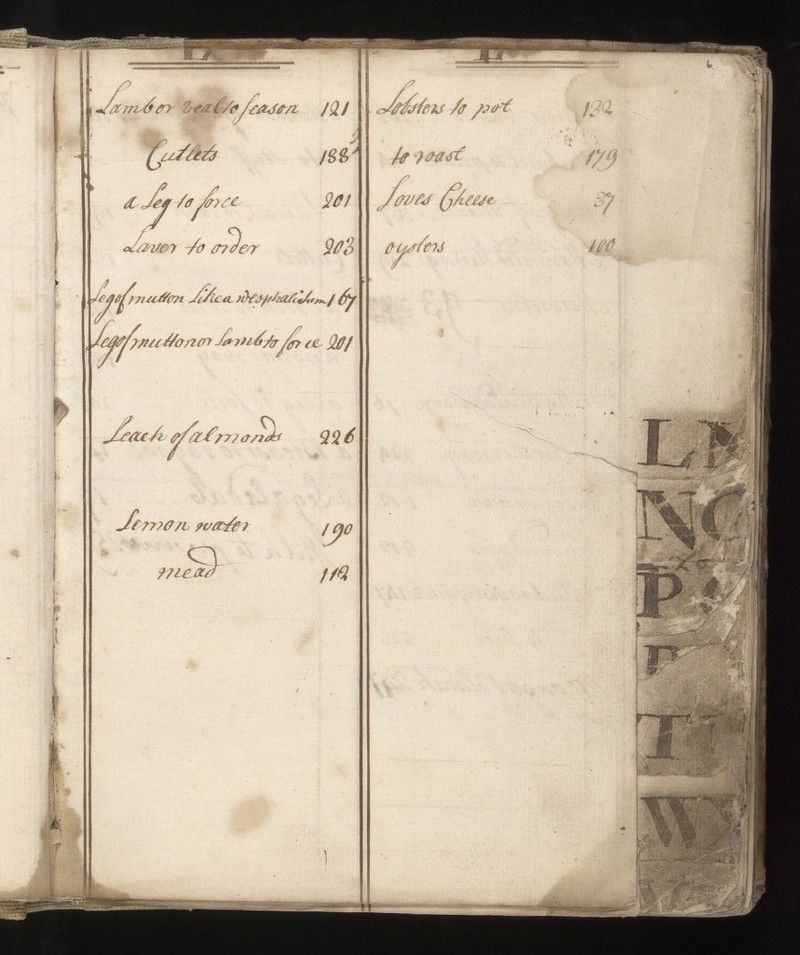 Lamb or veal to season 121
Cutlets 188
a Leg to force 201
Laver to order 203
Leg of mutton Like a wesphalia ham 167
Leg of mutton or Lamb to force 201
Leach of almonds 226
Lemon water 190
mead 112
Lobsters to pot 132
to roast 179
Loves Cheese 37
oysters 100
L M
N O
P
T
W